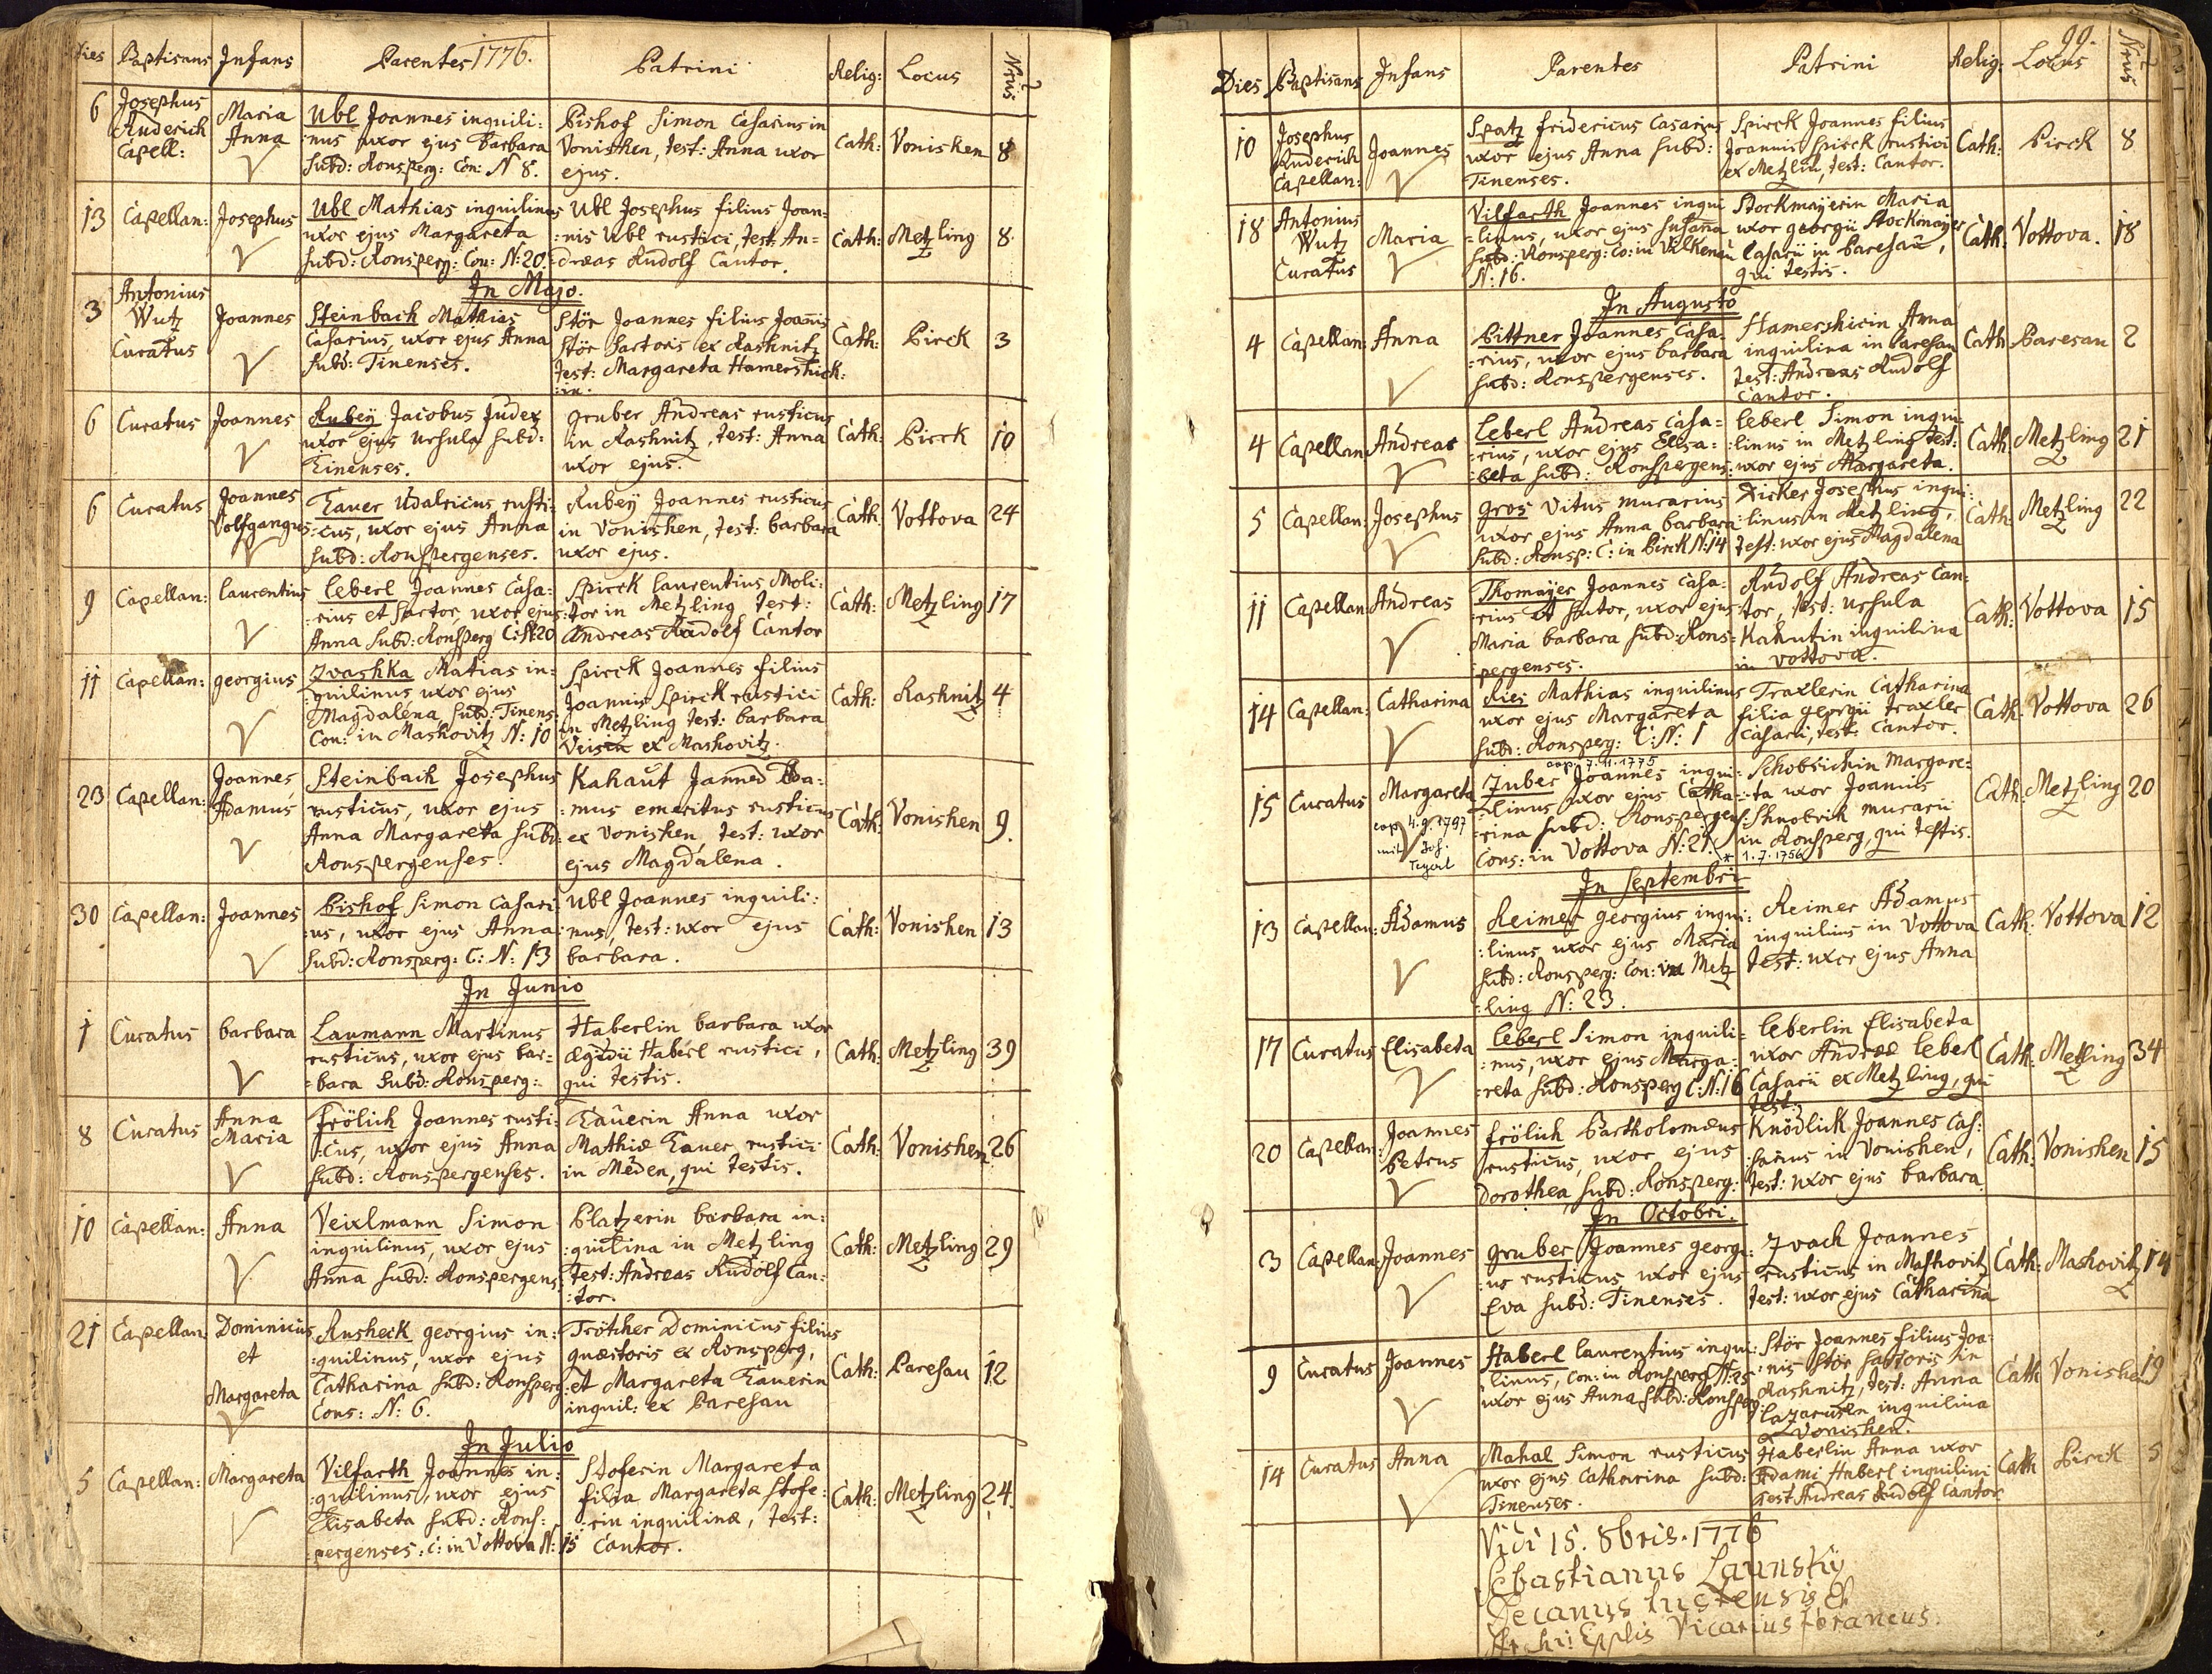 Dies Baptisans Infans Parentes 1776. Patrini Relig: Locus Nrus
6 Josephus Ruderich Capell: Maria Anna
Ubl Joannes inquili:
nus uxor ejus Barbara
subd: Ronsperg: Con: N 8.
Bishof Simon Casarius in
Vonishen, test: Anna uxor
ejus.
Cath: Vonishen 8
13 Capellan: Josephus
Ubl Mathias inquilinus
uxor ejus Margareta
subd: Ronsperg: Con: N: 20.
Ubl Josephus filius Joan:
:nis Ubl rustici, test: An=
:dreas Rudolf Cantor.
Cath: Metzling 8.
In Majo.
3 Antonius Wutz Curatus Joannes
Steinbach Mathias
Casarius, uxor ejus Anna
subd: Tinenses.
Stör Joannes filius Joanis
Stör sartoris ex Rashnitz
test: Margareta Hamershick:
:in.
Cath: Pirck 3
6 Curatus Joannes
Rubey Jacobus Judex
uxor ejus Ursula subd:
Tinenses.
gruber Andreas rusticus
in Rashnitz, test: Anna
uxor ejus.
Cath: Pirck 10
6 Curatus Joannes Volfgangus
Tauer Udalricus rusti:
:cus, uxor ejus Anna
subd: Ronspergenses.
Rubey Joannes rusticus
in Vonishen, test: barbara
uxor ejus.
Cath: Vottova 24
9 Capellan: laurentius
leberl Joannes Casa:
:rius et sartor, uxor ejus
Anna subd: Ronsperg C: N: 20
Spirck laurentius Moli:
:tor in Metzling test:
Andreas Rudolf Cantor
Cath: Metzling 17
11 Capellan: georgius
Zvashka Matias in:
:quilinus, uxor ejus
Magdalena, subd: Tinens:
Con: in Mashovitz N: 10
Spirck Joannes filius
Joannis Spirck rustici
in Metzling test: barbara
ex Mashovitz.
Cath: Rashnitz 4
23 Capellan: Joannes Adamus
Steinbach Josephus
rusticus, uxor ejus
Anna Margareta subd:
Ronspergenses.
Kahaut
:mus emeritus rusticus
ex Vonishen, test: uxor
ejus Magdalena.
Cath: Vonishen 9.
30 Capellan: Joannes
Bishof Simon Casari:
:us, uxor ejus Anna
subd: Ronsperg: C: N: 13
Ubl Joannes inquili:
:nus, test: uxor ejus
barbara.
Cath: Vonishen 13
In Junio
1 Curatus barbara
Laumann Martinus
rusticus, uxor ejus bar=
=bara subd: Ronsperg:
Haberlin barbara uxor
Ægidii Haberl rustici,
qui testis.
Cath: Metzling 39
8 Curatus Anna Maria
frölich Joannes rusti:
:cus, uxor ejus Anna
subd: Ronspergenses.
Tauerin Anna uxor
Mathiæ Tauer, rustici
in Meden, qui testis.
Cath: Vonishen 26
10 Capellan: Anna
Veixlmann Simon
inquilinus, uxor ejus
Anna subd: Ronspergens:
Platzerin barbara in:
:quilina in Metzling
test: Andreas Rudolf Can:
:tor.
Cath: Metzling 29
21 Capellan: Dominicus et Margareta
Rusheck georgius in:
:quilinus, uxor ejus
Catharina subd: Ronsperg:
Cons: N: 6.
Trötcher Dominicus filius
quæstoris ex Ronsperg,
et Margareta Tauerin
inquil: ex Paresau
Cath: Paresau 12
In Julio
5 Capellan: Margareta
Vilfarth Joannes in:
:quilinus, uxor ejus
Elisabeta subd: Rons:
:pergenses: C: in Vottova N: 15
Stoferin Margareta
filia Margareta Stofe:
:rin inquilinæ, test:
Cantor.
Cath: Metzling 24.
99.
Dies Baptisans Infans Parentes Patrini Relig: Locus Nrus
10 Josephus Ruderich Capellan: Joannes
Spatz fridericus Casarius
uxor ejus Anna subd:
Tinenses.
Spirck Joannes filius
Joannis Spirck rustici
ex Metzlin, test: Cantor.
Cath: Pirck 8
18 Antonius Wutz Curatus Maria
Vilfarth Joannes inqui
=linus, uxor ejus Susana
subd: Ronsperg: Co: in Vilkenau
N: 16.
Stockmajerin Maria
uxor georgii Stockmajer
Casarii in Paresau,
qui testis.
Cath. Vottova. 18
In Augusto
4 Capellan: Anna
Bittner Joannes Casa:
:rius, uxor ejus barbara
subd: Ronspergenses.
Hamershicin Anna
inquilina in Paresau
test: Andreas Rudolf
Cantor.
Cath Paresau 2
4 Capellan Andreas
Leberl Andreas Casa:
:rius, uxor ejus Elisa:
:beta subd: Ronspergens:
leberl Simon inqui:
:linus in Metzling test:
uxor ejus Margareta.
Cath. Metzling 21
5 Capellan: Josephus
gros Vitus murarius
uxor ejus Anna barbara
subd: Ronsp: C: in Pirck N: 14
Zicker Josephus inqui:
:linus in Metzling,
test: uxor ejus Magdalena
Cath: Metzling 22
11 Capellan Andreas
Thomayer Joannes Casa:
:rius et sutor, uxor ejus
Maria barbara subd: Rons=
pergenses.
Rudolf Andreas Can:
:tor, test: Ursula
Kahutin inquilina
in Vottova.
Cath: Vottova 15
14 Capellan: Catharina
Ries Mathias inquilinus
uxor ejus Margareta
subd: Ronsperg: C: N: 1
Traxlerin Catharina
filia georgii traxler
Casarii, test: Cantor.
Cath: Vottova 26
cop. 7.11.1775
15 Curatus Margareta
cop. 4.9.1797
mit Joh.
Zuber Joannes inqui:
:linus uxor ejus Catha:
:rina subd: Ronspergens:
Cons: in Vottova N: 21.
Schobrichin Margare:
:ta uxor Joannis
Shnobrich murarii
in Ronsperg, qui testis.
* 1.7.1756
Cath: Metzling 20
In Septembri
13 Capellan: Adamus
Reimer georgius inqui:
:linus, uxor ejus Maria
subd: Ronsperg: Con: in Metz
:ling N: 23.
Reimer Adamus
inquilinus in Vottova
test: uxor ejus Anna
Cath: Vottova 12
17 Curatus Elisabeta
leberl Simon inquili=
:nus, uxor ejus Marga:
:reta subd: Ronsperg C: N: 16
leberlin Elisabeta
uxor Andreæ leberl
Casarii ex Metzling, qui
test:
Cath: Metling 34
20 Capellan: Joannes Petrus
frölich Bartholomæus
rusticus, uxor ejus
Dorothea, subd: Ronsperg:
Knödlick Joannes Cas:
:sarius in Vonishen,
test: uxor ejus barbara.
Cath: Vonishen 15
In Octobri.
3 Capellan Joannes
gruber Joannes georgi:
:us rusticus uxor ejus
Eva subd: Tinenses.
Zvach Joannes
rusticus in Mashovitz
test: uxor ejus Catharina
Cath: Mashovitz 14
9 Curatus Joannes
Haberl laurentius inqui:
linus, Con: in Ronsperg N: 25
uxor ejus Anna subd: Ronsperg
Stör Joannes filius Joa
:nis Stör sartoris in
Rashnitz, test: Anna
Lazarusin inquilina
ex Vonishen.
Cath Vonishe 19
14 Curatus Anna
Mahal Simon rusticus
uxor ejus Catharina subd:
Tinenses.
Haberlin Anna uxor
Adami Haberl inquilini
test Andreas Rudolf Cantor
Cath Pirck 5
Vidi 15. 8bris. 1776
Sebastianus Launsky
Decanus
Vicarius foraneus.